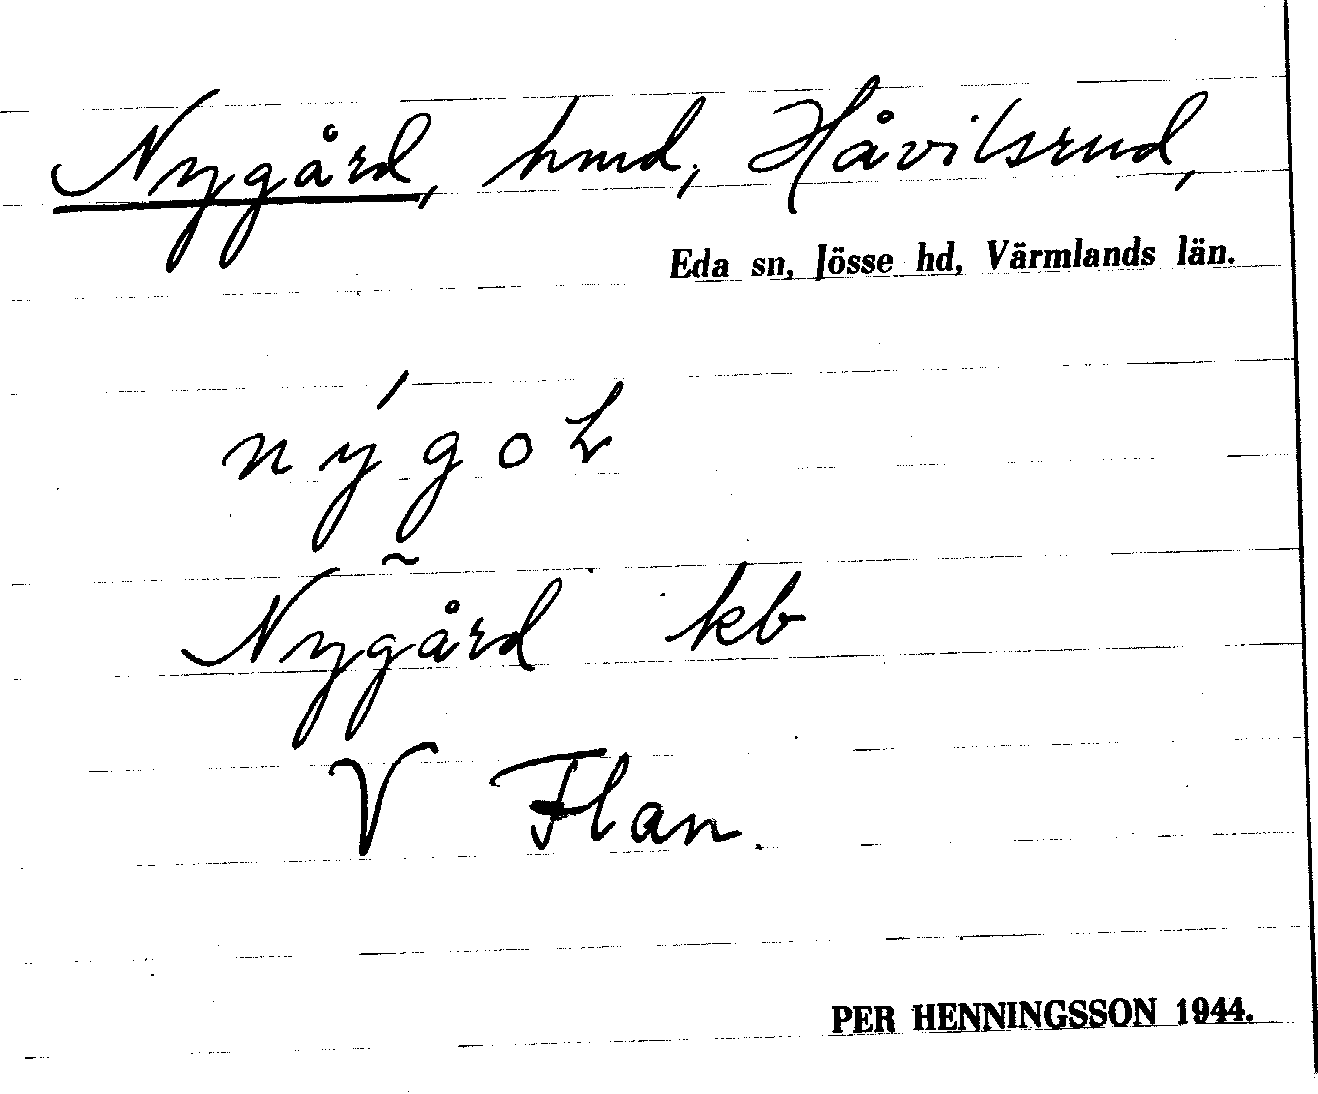 Nygård, hmd, Håvilsrud,
Eda sn, Jösse hd, Värmlands län.
Nygård kb
V Flan.
PER HENNINGSSON 1944.